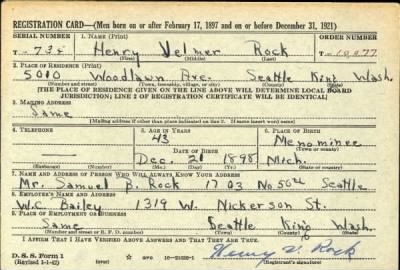 REGISTRATION CARD—(Men born on or after February 17, 1897 and on or before December 31, 1921)
SERIAL NUMBER 1. NAME (Print) ORDER NUMBER
T- 735 Henry Velmer Rock T- 10,077
(First) (Middle) (Last)
2. PLACE OF RESIDENCE (Print)
5010 Woodlawn Ave. Seattle King Wash.
(Number and street) (Town, township, village, or city) (County) (State)
[THE PLACE OF RESIDENCE GIVEN ON THE LINE ABOVE WILL DETERMINE LOCAL BOARD
JURISDICTION; LINE 2 OF REGISTRATION CERTIFICATE WILL BE IDENTICAL]
3. MAILING ADDRESS
Same
[Mailing address if other than place indicated on line 2. If same insert word same]
4. TELEPHONE 5. AGE IN YEARS 6. PLACE OF BIRTH
43 Menominee
DATE OF BIRTH (Town or county)
Dec. 21 1898 Mich.
(Exchange) (Number) (Mo.) (Day) (Yr.) (State or country)
7. NAME AND ADDRESS OF PERSON WHO WILL ALWAYS KNOW YOUR ADDRESS
Mr. Samuel B. Rock 1703 No. 50th Seattle
8. EMPLOYER'S NAME AND ADDRESS
W.C. Bailey 1319 W. Nickerson St.
9. PLACE OF EMPLOYMENT OR BUSINESS
Same Seattle King Wash.
(Number and street or R. F. D. number) (Town) (County) (State)
I AFFIRM THAT I HAVE VERIFIED ABOVE ANSWERS AND THAT THEY ARE TRUE.
D. S. S. Form 1
(Revised 1-1-42) (over) Henry V. Rock
(Registrant's signature)